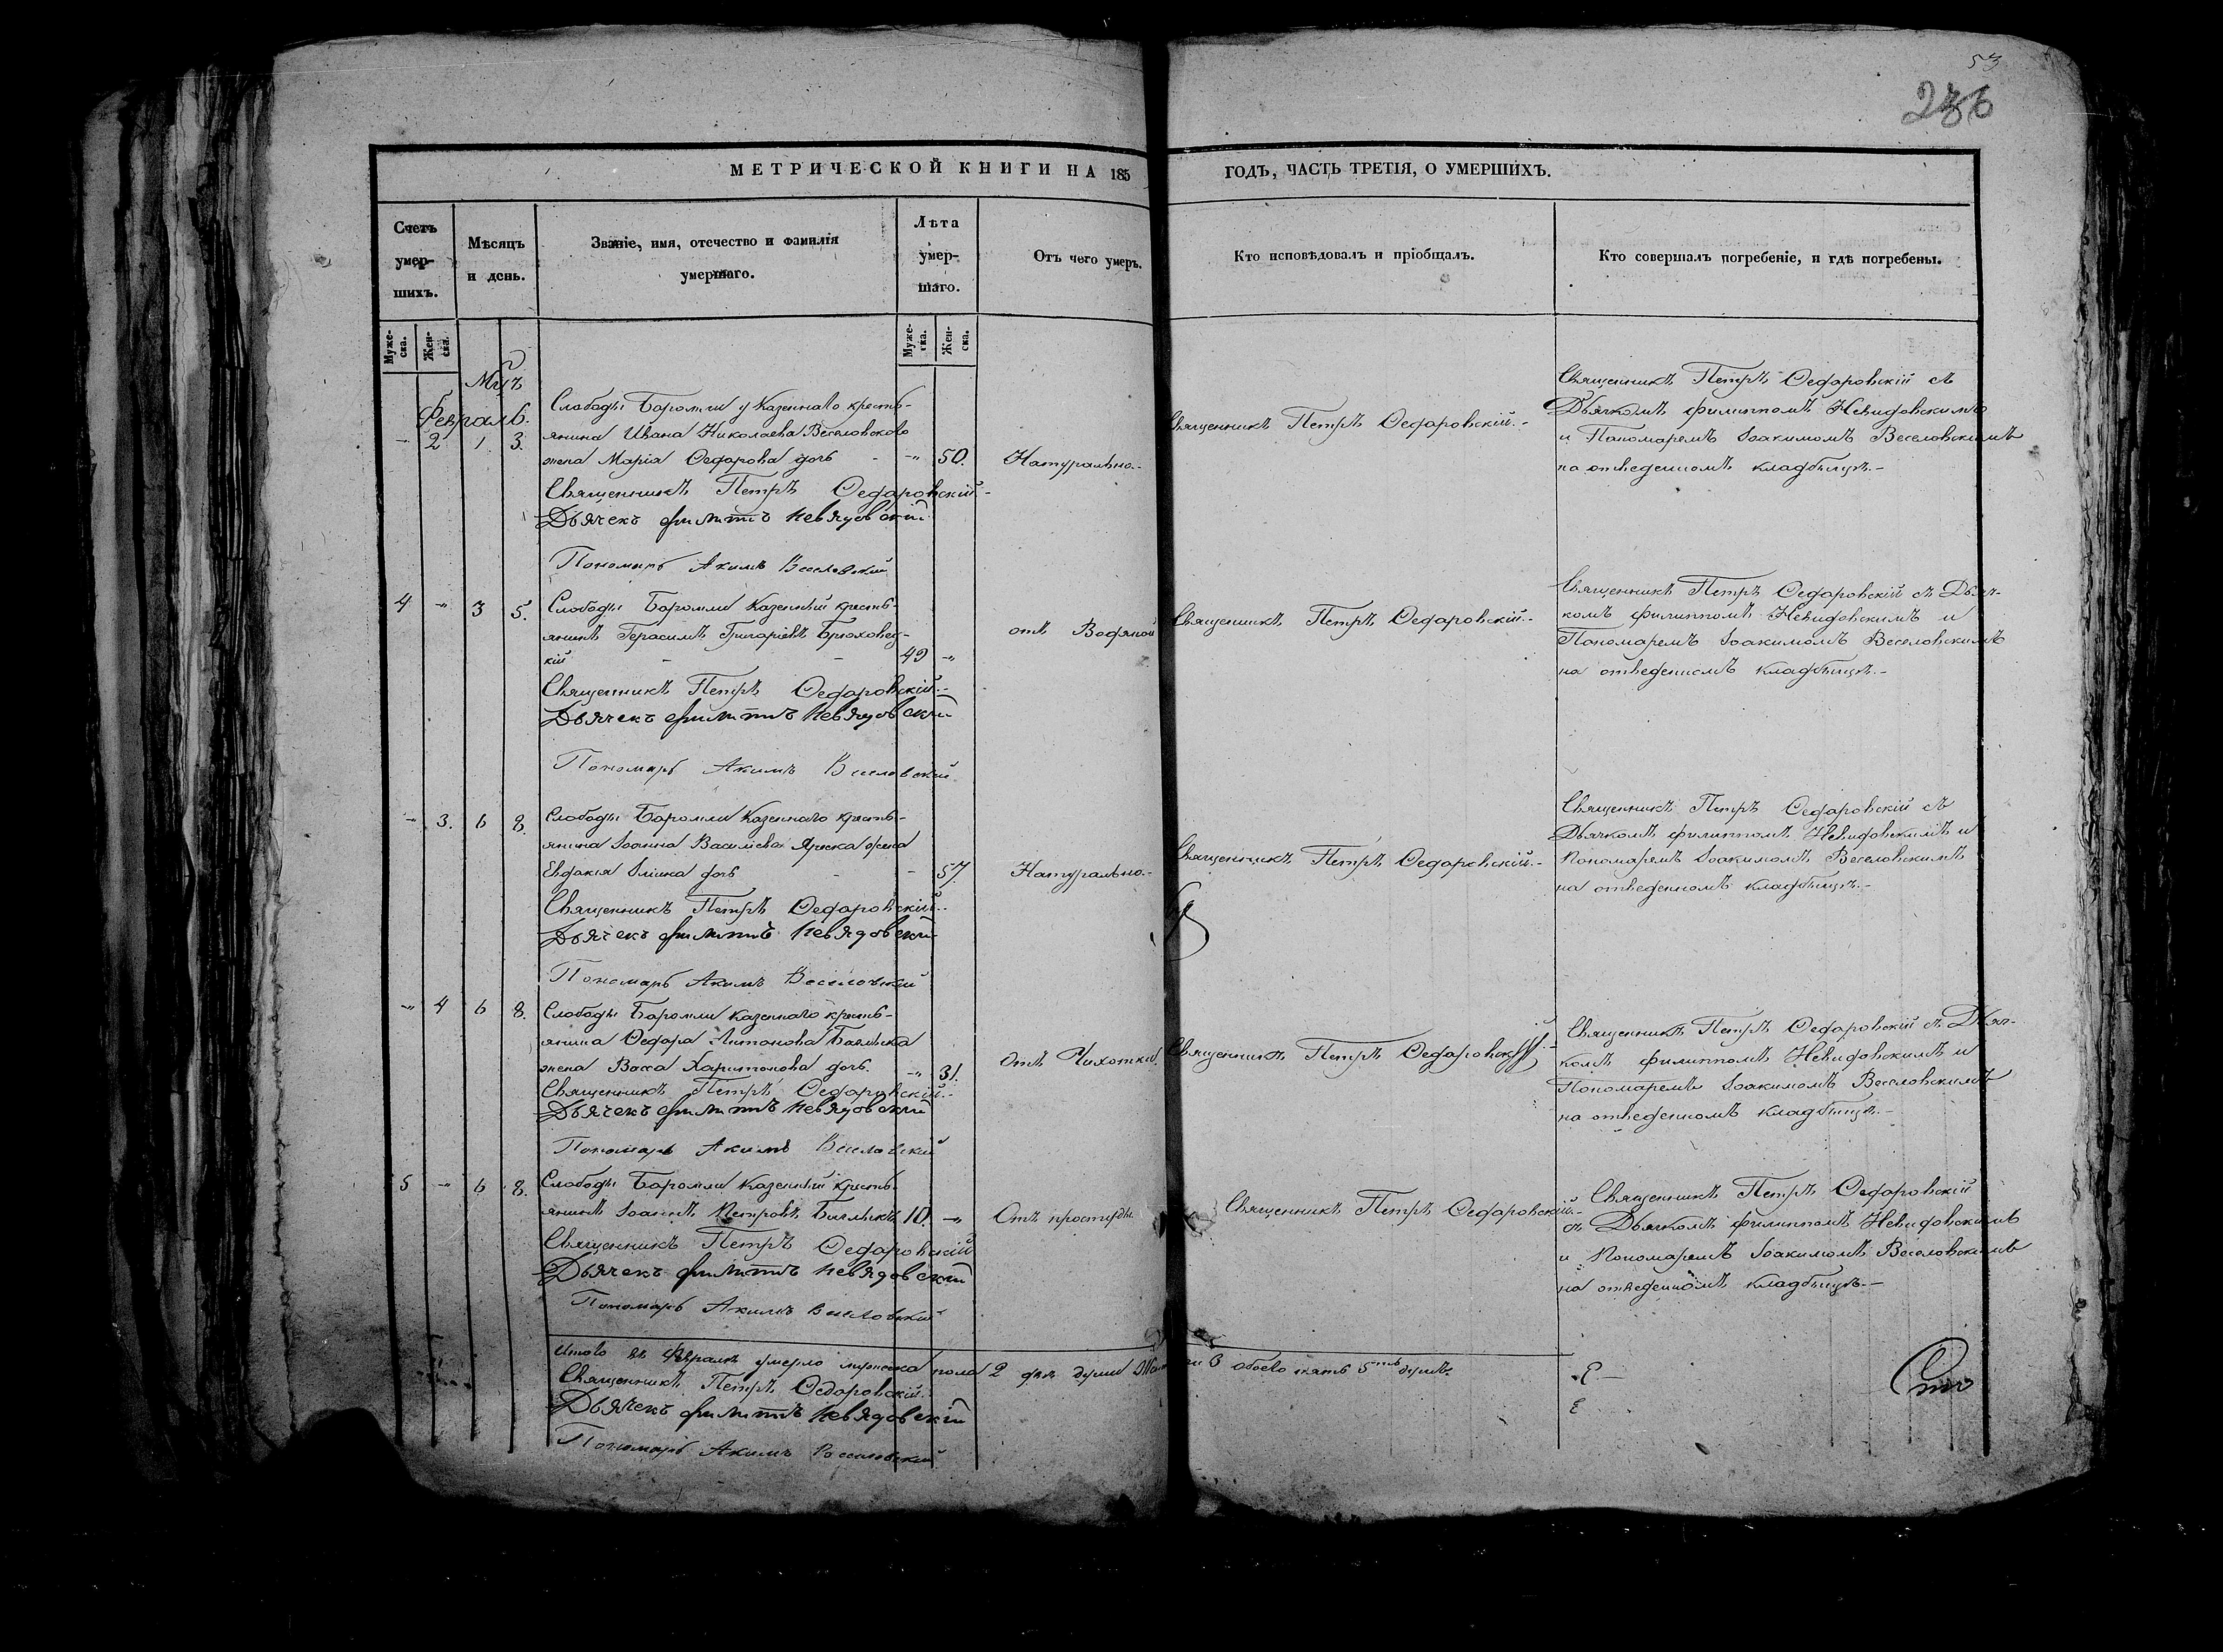 53
236
МЕТРИЧЕСКОЙ КНИГИ НА 185 ГОДЪ, ЧАСТЬ ТРЕТІЯ, О УМЕРШИХЪ.
Счетъ умер-шихъ.
Мѣсяцъ и день.
Званіе, имя, отечество и фамилія умершаго.
Лѣта умер-шаго.
Отъ чего умеръ.
Кто исповѣдовалъ и пріобщалъ.
Кто совершалъ погребеніе, и гдѣ погребены.
Муже-ска. Жен-ска.
Муже-ска. Жен-ска.
Мцъ
Февраль.
- 2 1. 3.
Слободы Боромли Казеннаго кресть-
янина Ивана Николаева Веселовскаго
жена Марія Федорова дочь - -" 50. Натурально.-
Священникъ Петръ Федоровскій.-
Священникъ Петръ Федоровскій съ
Дьячкомъ Филиппомъ Невядовскимъ
и Пономаремъ Іоакимомъ Веселовскимъ
на отведенномъ кладбищѣ.-
Священникъ Петръ Федоровскій.-
Дьячекъ Филиппъ Невядовскій
Пономарь Акимъ Веселовскій
4 -" 3 5.
Слободы Боромли Казенный кресть-
янинъ Герасимъ Григоріевъ Брюховец-
кій - - 49 -"
отъ Водяной
Священникъ Петръ Федоровскій.-
Священникъ Петръ Федоровскій съ Дьяч-
комъ Филиппомъ Невядовскимъ и
Пономаремъ Іоакимомъ Веселовскимъ
на отведенномъ кладбищѣ.-
Священникъ Петръ Федоровскій.-
Дьячекъ Филиппъ Невядовскій
Пономарь Акимъ Веселовскій
-" 3. 6 8.
Слободы Боромли Казеннаго кресть-
янина Іоанна Василіева жена
Евдокія дочь - - 57. Натурально.-
Священникъ Петръ Федоровскій.-
Священникъ Петръ Федоровскій съ
Дьячкомъ Филиппомъ Невядовскимъ и
Пономаремъ Іоакимомъ Веселовскимъ
на отведенномъ кладбищѣ.-
Священникъ Петръ Федоровскій.-
Дьячекъ Филиппъ Невядовскій
Пономарь Акимъ Веселовскій
-" 4 6 8.
Слободы Боромли казеннаго кресть-
янина Федора Антонова
жена Васса Харитонова дочь. -" 31.
Отъ Чихотки.
Священникъ Петръ Федоровскій.
Священникъ Петръ Федоровскій съ Дьяч-
комъ Филиппомъ Невядовскимъ и
Пономаремъ Іоакимомъ Веселовскимъ
на отведенномъ кладбищѣ.-
Священникъ Петръ Федоровскій.-
Дьячекъ Филиппъ Невядовскій
Пономарь Акимъ Веселовскій
5 -" 6 8.
Слободы Боромли казенный кресть-
янинъ Іоаннъ Петровъ 10. -" Отъ простуды.
Священникъ Петръ Федоровскій.-
Священникъ Петръ Федоровскій
съ Дьячкомъ Филиппомъ Невядовскимъ
и Пономаремъ Іоакимомъ Веселовскимъ
на отведенномъ кладбищѣ.-
Священникъ Петръ Федоровскій
Дьячекъ Филиппъ Невядовскій
Пономарь Акимъ Веселовскій
Итого въ Февралѣ умерло мужеска пола 2 двѣ души 3 обоего пять 5ть душъ.
Священникъ Петръ Федоровскій.
Дьячекъ Филиппъ Невядовскій
Пономарь Акимъ Веселовскій